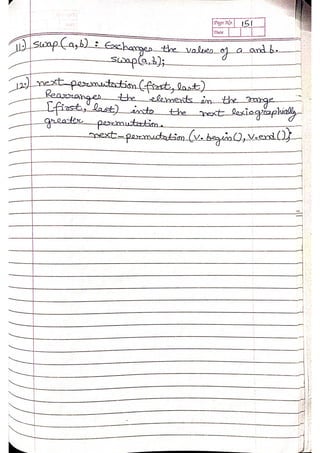 Page No. 151
Date
11.) swap(a,b) : Exchanges the values of a and b.
swap(a,b);
12.) next-permutation(first, last)
Rearranges the elements in the range
[first, last) into the next lexiographically
greater permutation.
next-permutation (v.begin(), v.end());